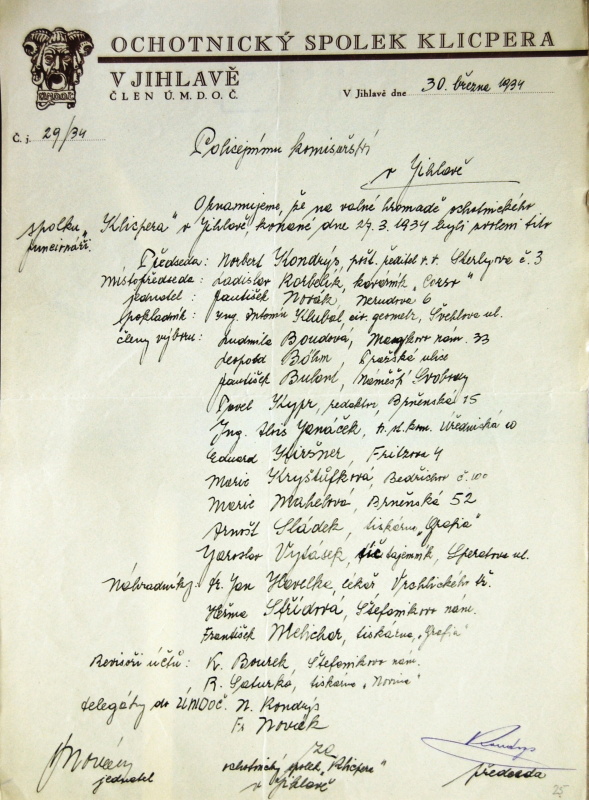 OCHOTNICKÝ SPOLEK KLICPERA
V JIHLAVĚ
ČLEN Ú.M.D.O.Č.
V Jihlavě dne 30. března 1934
Č. j. 29/34
Policejnímu komisařství
v Jihlavě
Oznamujeme, že na valné hromadě ochotnického
spolku „Klicpera" v Jihlavě, konané dne 27.3.1934 byli zvoleni tito
funcionáři:
Předseda: Norbert Kondrýs, pošt. ředitel v.v. Sterlyova č. 3
Místopředseda: Ladislav Korbelík, kavárník „Corso"
jednatel: František Novák, Nerudova 6
Pokladník: Ing. Antonín Klubal, civ. geometr, Švehlova ul.
členy výboru: Ludmila Boudová, Masykovo nám. 33
Leopold Böhm, Pražská ulice
František Bulant, Náměstí Svobody
Pavel Kypr, redaktor, Brněnská 15
Ing. Alois Janáček, Úřednická 10
Eduard Kiršner, Fritzova 4
Marie Kryštůfková, Bedřichov č. 100
Marie Mahelová, Brněnská 52
Arnošt Sládek, tiskárna „Grafia"
Jaroslav Vytásek, tajemník, Speratova ul.
Náhradníky: Dr. Jan Havelka, lékař, Vrchlického tř.
Heřma Střídová, Štefanikovo nám.
František Melichar, tiskárna „Grafia"
Revisoři účtů: K. Bourek, Štefanikovo nám.
R. Saturka, tiskárna „Novina"
delegáty do ÚMDOČ. N. Kondrýs
Fr. Novák
Novák
jednatel
za
ochotnický spolek „Klicpera"
v Jihlavě
Kondrys
předseda
25